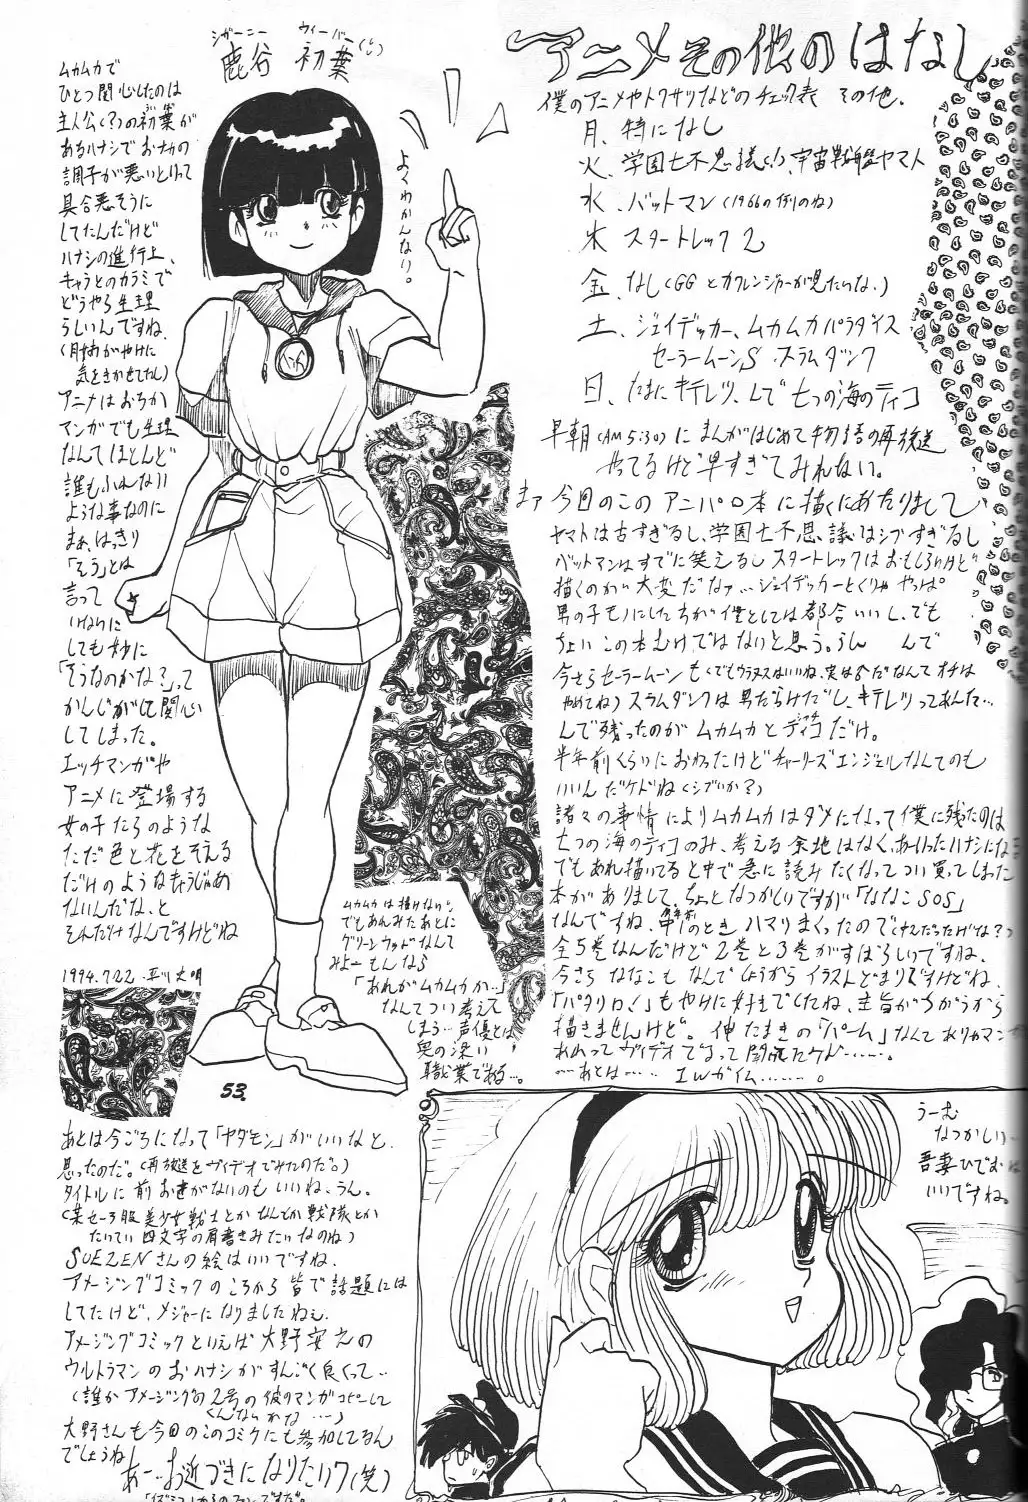 アニメその他のはなし
僕のアニメやトクサツなどのチェック表 その他.
月、特になし
火、学園七不思議(!)、宇宙戦艦ヤマト
水、バットマン(1966の例のね)
木 スタートレック2
金、なし(GGとカクレンジャーが見たいな.)
土、ジェイデッカー、ムカムカパラダイス
セーラームーンS、スラムダンク
日、たまにキテレツ、して七つの海のティコ
早朝(AM5:30)にまんがはじめて物語の再放送
やってるけど早すぎてみれない。
まァ今回のこのアニパロ本に描くにあたりまして
ヤマトは古すぎるし、学園七不思議はシブすぎるし
バットマンはすでに笑えるしスタートレックはおもしろいけど
描くのが大変だなァ…ジェイデッカーとくりゃやっぱ
男の子モノにした方が僕としては都合いいし、でも
ちょいこの本むけではないと思う。うん んで
今さらセーラームーンも(でもウラヌスはいいね、実は だなんてオチは
やめてね)スラムダンクは男だらけだし、キテレツってあんた…
んで残ったのがムカムカとティコだけ。
半年前くらいにおわったけどチャーリーズエンジェルなんてのも
いいんだケドね(シブいか?)
諸々の事情によりムカムカはダメになって僕に残ったのは
七つの海のティコのみ、考える余地はなく、あーいったハナシになる
でもあれ描いてると中で急に読みたくなってつい買ってしまった
本がありまして、ちょとなつかしいですが「ななこSOS」
なんですね、 のときハマりまくったので
全5巻なんだけど2巻と3巻がすばらしいですね
今さらななこもなんでしょうからイラストどまりですけどね、
「パタリロ!」もやけに好きでしたね、主旨がちがうから
描きませんけど。伸たまきの「パーム」なんてありゃマンガ

……あとは…… IWガイム……。
シガーニー ウィーバー
鹿谷 初葉
よくわかんない。
ムカムカで
ひとつ関心したのは
主人公(?)の初葉が
あるハナシでおナカの
調子が悪いといって
具合悪そうに
してたんだけど
ハナシの進行上、
キャラとのカラミで
どうやら生理
らしいんですね、
(月がやけに
気をきかせてたし)
アニメはおろか
マンガでも生理
なんてほとんど
誰もふれない
ような事なのに
まぁ、はっきり
「そう」とは
言って
いないに
しても妙に
「そうなのかな?」って
かんじがして関心
してしまった。
エッチマンガや
アニメに登場する
女の子たちのような
ただ色と花をそえる
だけのようなキャラじゃあ
ないんだな、と
それだけなんですけどね
1994.7.22.
ムカムカは描けないが、
でもあんみたあとに
グリーンウッドなんて
みよーもんなら
「あれがムカムカか…」
なんてつい考えて
しまう…声優とは
奥の深い
職業でねぇ…。
53.
あとは今ごろになって「ヤダモン」がいいなと、
思ったのだ。(再放送をヴィデオでみたのだ。)
タイトルに前おきがないのもいいね、うん。
(某セーラー服美少女戦士とかなんでか戦隊とか
たいてい四文字の肩書きみたいなのね)
SUEZENさんの絵はいいですね、
アメージングコミックのころから皆で話題には
してたけど、メジャーになりましたねぇ、
アメージングコミックといえば大野安之の
ウルトラマンのおハナシがすんごく良くって…
(誰かアメージングの2号の彼のマンガコピーして
くんないかな……)
大野さんも今回のこのコミケにも参加してるん
でしょうね
あー…お近づきになりたい?(笑)
うーむ
なつかしい…
吾妻ひでお
いいですね。